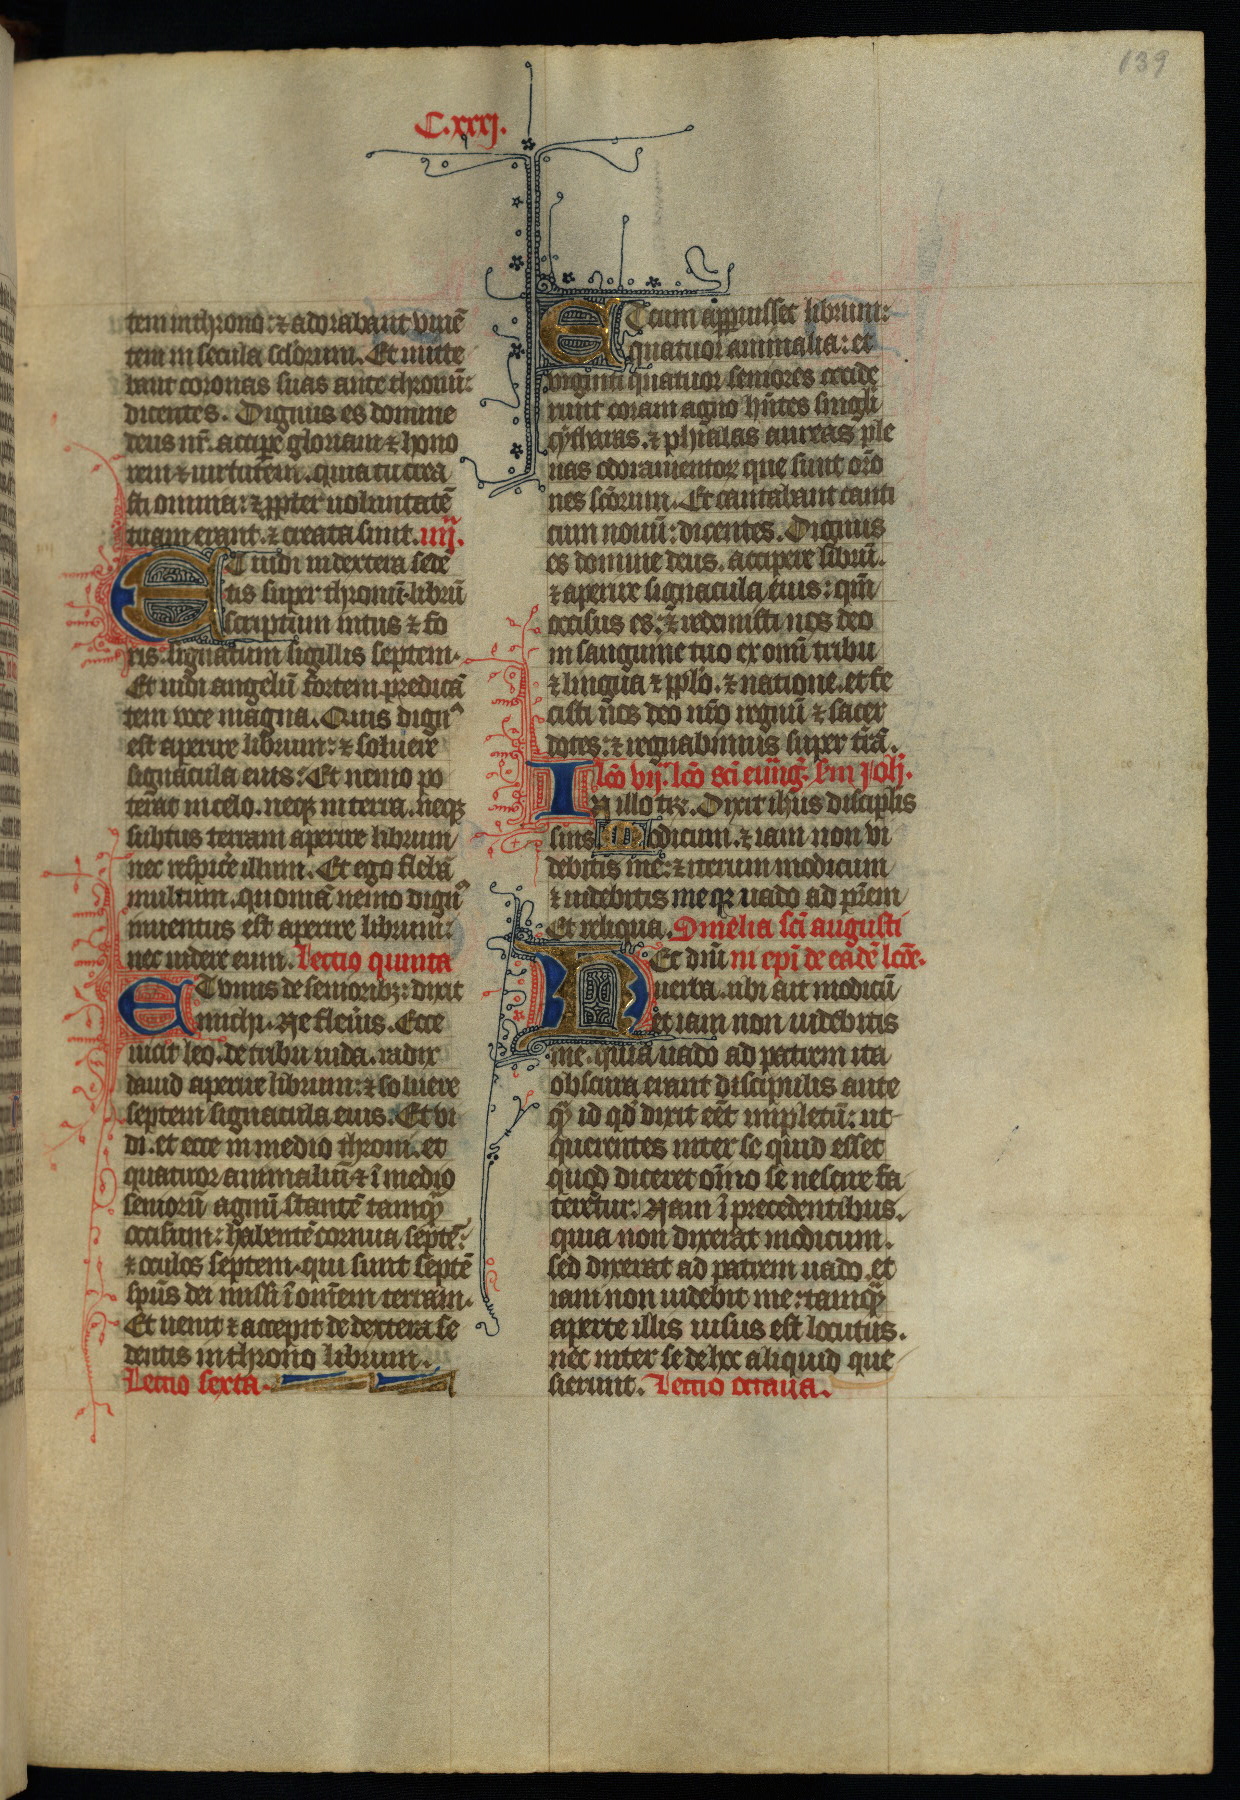 139
C.xxxj.
tem in throno: ⁊ adorabant viuē
tem in secula sclorum. Et mitte
bant coronas suas ante thronū:
dicentes. Dignus es domine
deus nr̄. accipe gloriam ⁊ hono
rem ⁊ uirtutem. quia tu crea
sti omnia: ⁊ ꝓpter uoluntatē
tuam erant. ⁊ creata sunt. iiij.
ET uidi in dextera sedē
tis super thronū. librū
scriptum intus ⁊ fo
ris. signatum sigillis septem.
Et uidi angelū fortem predicā
tem uoce magna. Quis dignꝰ
est aperire librum: ⁊ soluere
signacula eius: Et nemo po
terat in celo. neqꝫ in terra. neqꝫ
subtus terram aperire librum
nec respicere illum. Et ego flebā
multum. quoniā nemo dignꝰ
inuentus est aperire librum:
nec uidere eum. Lectio quinta
ET vnus de senioribꝫ: dixit
michi. Ne fleuis. Ecce
uicit leo. de tribu iuda. radix
dauid aperire librum: ⁊ soluere
septem signacula eius. Et vi
di. et ecce in medio throni. et
quatuor animaliū ⁊ ī medio
seniorū agnū stantē tamqꝫ
occisum: habentē cornua septē:
⁊ oculos septem. qui sunt septē
spūs dei missi ī omnem terram.
Et uenit ⁊ accepit de dextera se
dentis in throno librum.
Lectio sexta.
ET cum apperuisset librum:
quatuor animalia: et
viginti quatuor seniores cecide
runt coram agno hñtes singli
cytharas. ⁊ phialas aureas ple
nas odoramentoꝝ que sunt orō
nes scōrum. Et cantabant canti
cum nouū: dicentes. Dignus
es domine deus. accipere librū.
⁊ aperire signacula eius: qm̄
occisus es: ⁊ redemisti nos deo
in sanguine tuo ex omni tribu
⁊ lingua ⁊ pplo. ⁊ natione. et fe
cisti nos deo nr̄o regnū ⁊ sacer
dotes: ⁊ regnabimus super trā.
lcō vij. lcō sci euūg. sm Joh.
IN illo tꝑr. Dixit ihus disciplis
suis Modicum. ⁊ iam non vi
debitis me: ⁊ iterum modicum
⁊ uidebitis me qꝛ uado ad prēm
Et reliqua. Omelia sci augusti
HEc dn̄i ni epī de eadē lcōe.
uerba. ubi ait modicū
et iam non uidebitis
me. quia uado ad patrem ita
obscura erant discipulis ante
qꝫ id qd̄ dixit eēt impletū: ut
querentes inter se quid esset
quod diceret oīno se nescire fa
terētur. Nam ī precedentibus.
quia non dixerat modicum.
sed dixerat ad patrem uado. et
iam non uidebit me: tamqꝫ
aperte illis uisus est locutus.
nec inter se de hoc aliquid que
sierunt. Lectio octaua.